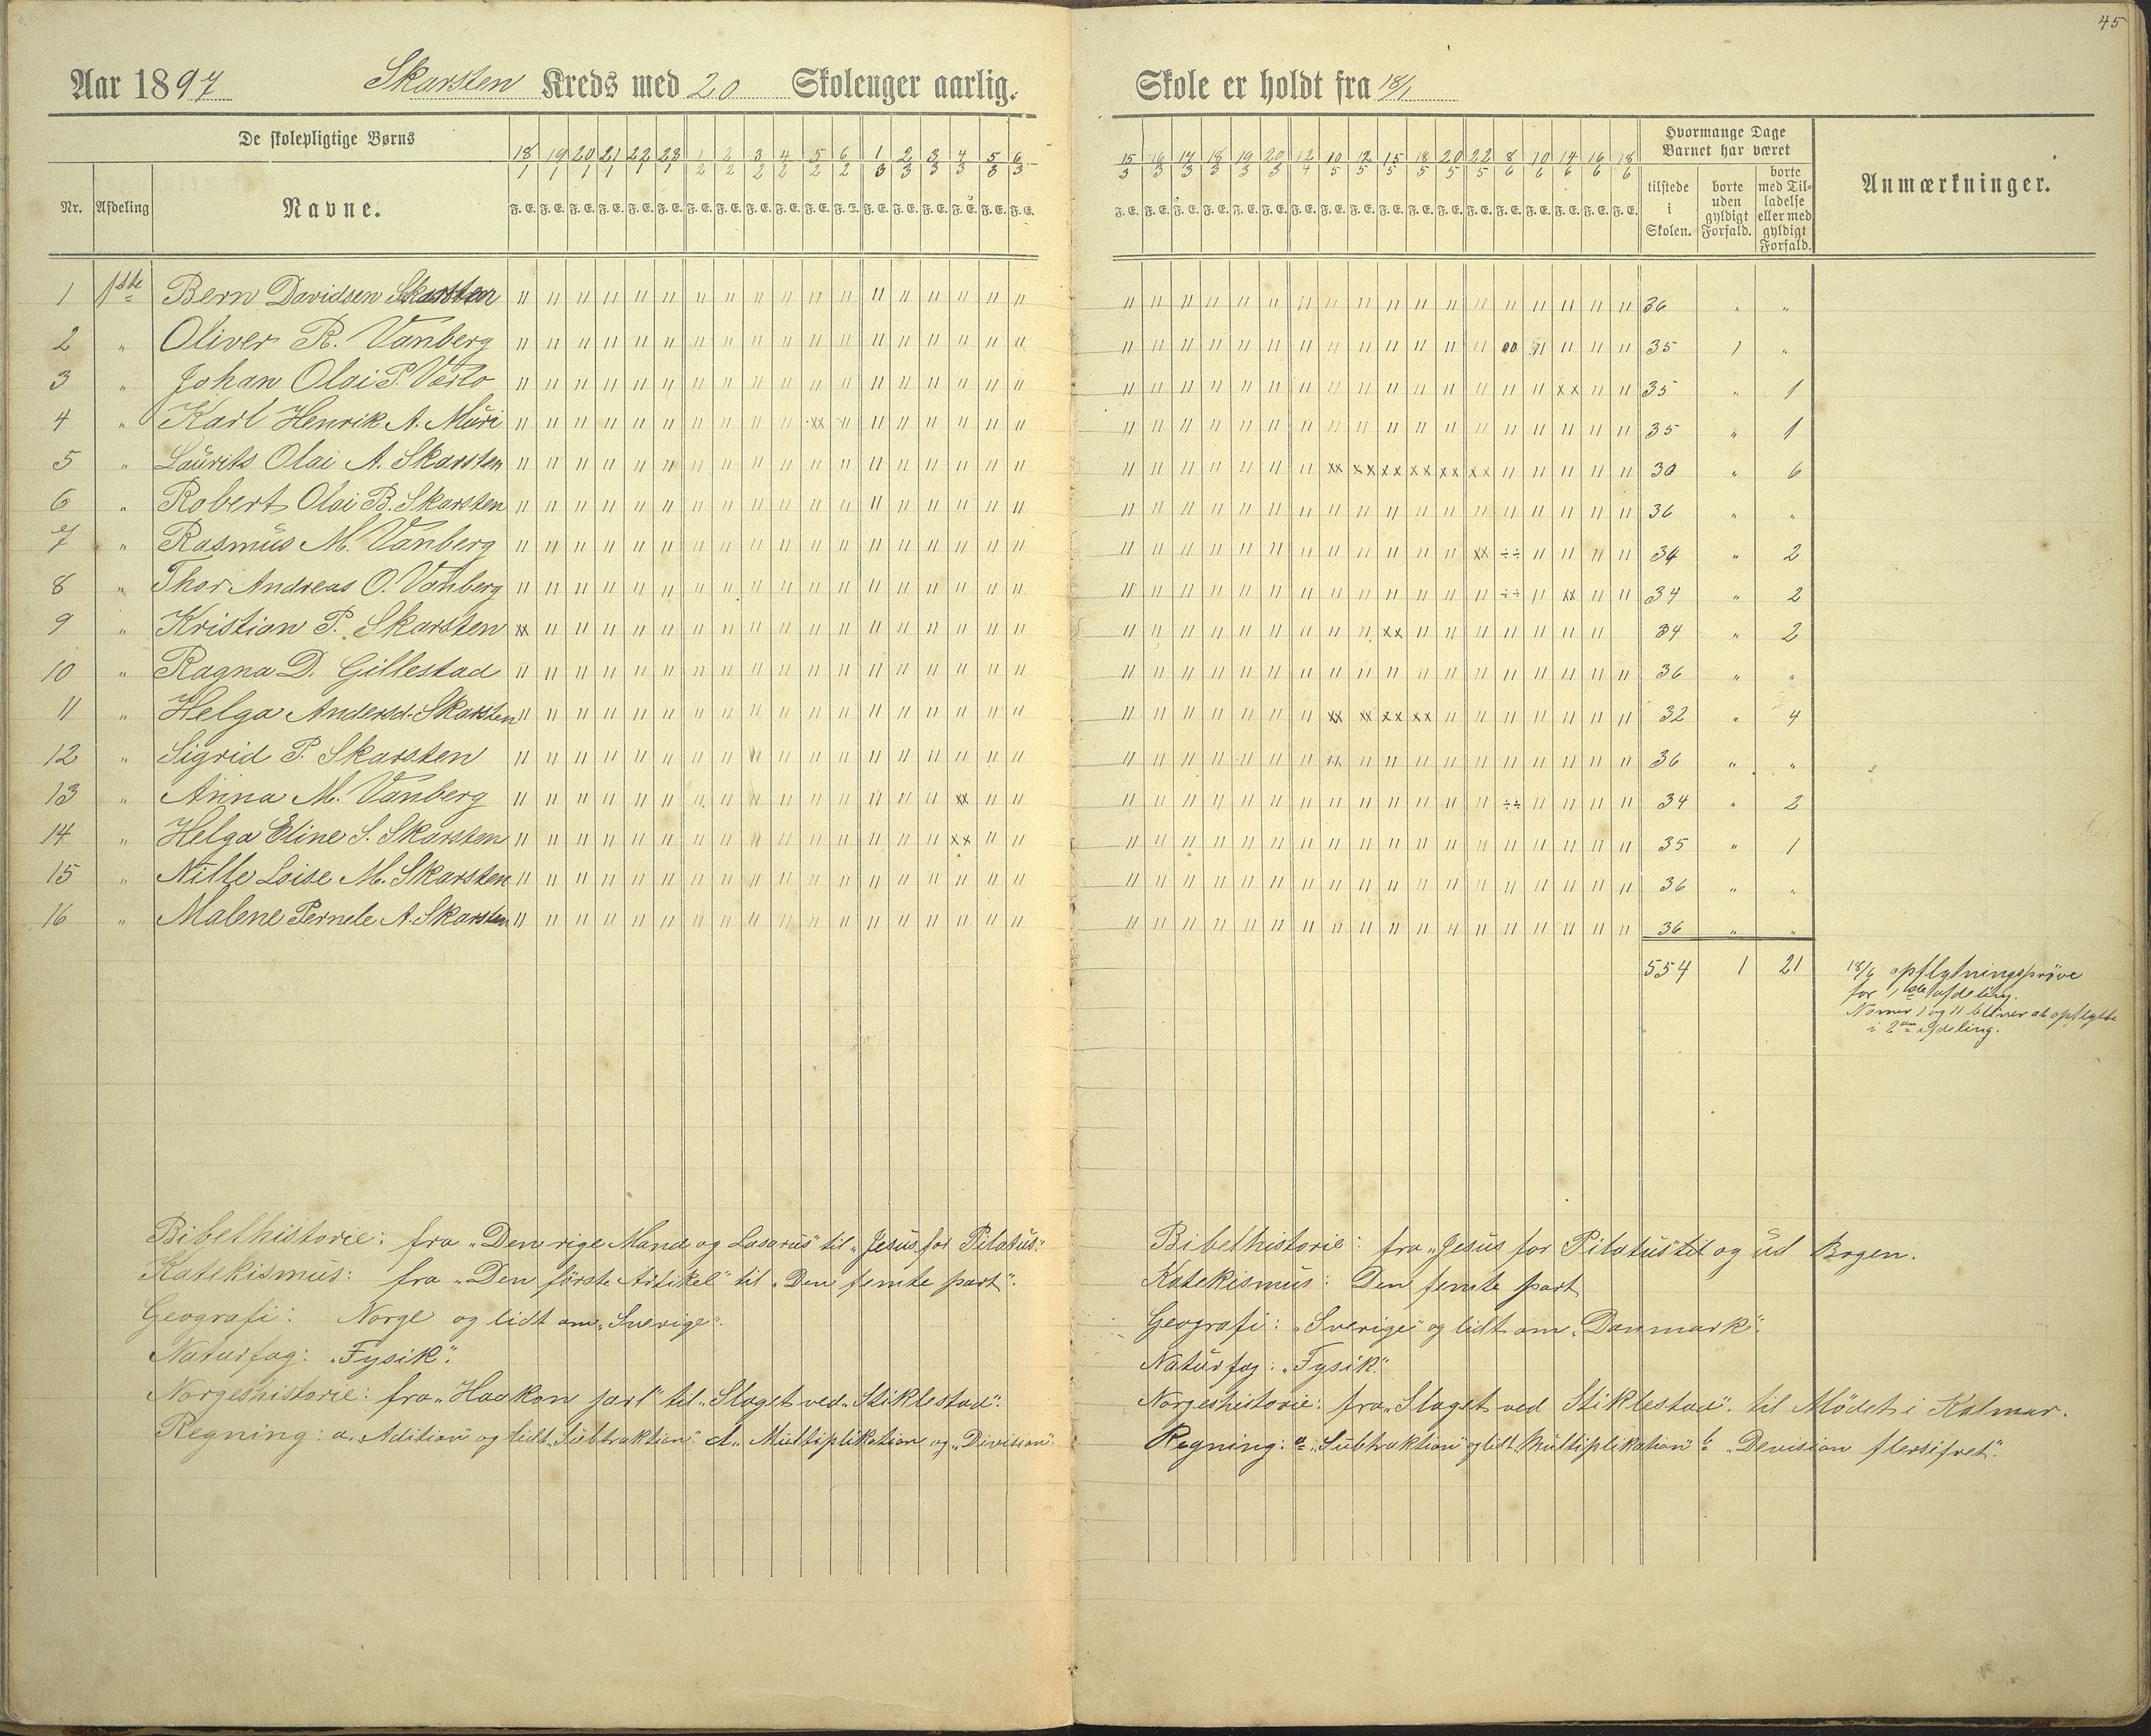 45
Aar 1897 Skarsten Kreds med 20 Skoleuger aarlig. Skole er holdt fra 18/1
De skolepligtige Børns
Nr. Afdeling Navne.
18/1 19/1 20/1 21/1 22/1 23/1 1/2 2/2 3/2 4/2 5/2 6/2 1/3 2/3 3/3 4/3 5/3 6/3
F. E. F. E. F. E. F. E. F. E. F. E. F. E. F. E. F. E. F. E. F. E. F. E. F. E. F. E. F. E. F. E. F. E. F. E.
15/3 16/3 17/3 18/3 19/3 20/3 12/4 10/5 12/5 15/5 18/5 20/5 22/5 8/6 10/6 14/6 16/6 18/6
F. E. F. E. F. E. F. E. F. E. F. E. F. E. F. E. F. E. F. E. F. E. F. E. F. E. F. E. F. E. F. E. F. E. F. E.
Hvormange Dage
Barnet har været
tilstede
i
Skolen.
borte
uden
gyldigt
Forfald.
borte
med Til-
ladelse
eller med
gyldigt
Forfald.
Anmærkninger.
1 1ste Bern Davidsen Skarsten 36 " "
2 " Oliver R. Vanberg 35 1 "
3 " Johan Olai P. Verlo 35 " 1
4 " Karl Henrik A. Muri 35 " 1
5 " Laurits Olai A. Skarsten 30 " 6
6 " Robert Olai B. Skarsten 36 " "
7 " Rasmus M. Vanberg 34 " 2
8 " Thor Andreas O. Vanberg 34 " 2
9 " Kristian P. Skarsten 34 " 2
10 " Ragna D. Gillestad 36 " "
11 " Helga Andersd. Skarsten 32 " 4
12 " Sigrid P. Skarsten 36 " "
13 " Anna M. Vanberg 34 " 2
14 " Helga Eline S. Skarsten 35 " 1
15 " Nille Loise M. Skarsten 36 " "
16 " Malene Pernele A. Skarsten 36 " "
554 1 21
18/6 opflytningsprøve
for 1ste afdeling.
Nomer 1 og 11 bliver at opflytte
i 2den afdeling.
Bibelhistorie: fra "Den rige Mand og Lasarus" til "Jesus for Pilatus".
Katekismus: fra "Den første Artikel" til "Den femte part".
Geografi: Norge og lidt om "Sverige".
Naturfag: "Fysik".
Norgeshistorie: fra "Haakon jarl" til "Slaget ved "Stiklestad".
Regning: a. "Adition" og lidt "Subtraktion". d. "Multiplikation og "Division".
Bibelhistorie: fra "Jesus for Pilatus" til og ud Bogen.
Katekismus: Den femte part
Geografi: "Sverige" og lidt om "Danmark".
Naturfag: "Fysik".
Norgeshistorie: fra "Slaget ved Stiklestad". til Mødet i Kalmar.
Regning: a "Subtraktion" og lidt "Multiplikation" b "Devision flersifret".